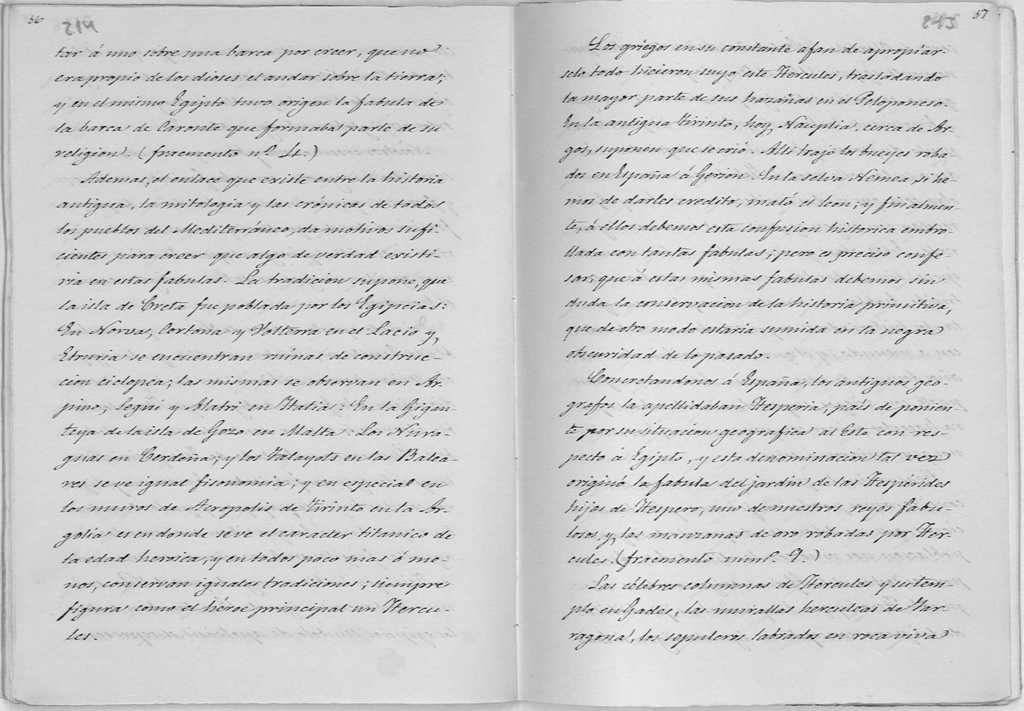 56
214
tar á uno sobre una barca por creer, que no
era propio de los dioses el andar sobre la tierra;
y en el mismo Egipto tuvo origen la fabula de
la barca de Caronte que formaba parte de su
religion. (fracmento nº 4.)
Ademas, el enlace que existe entre la historia
antigua, la mitologia y las crónicas de todos
los pueblos del Mediterráneo, da motivos sufi-
cientes para creer que algo de verdad existi-
ria en estas fabulas. La tradicion supone, que
la isla de Creta fue poblada por los Egipcios:
En Norva, Cortona y Volterra en el Lacio y,
Etruria se encuentran ruinas de construc-
cion ciclopea; las mismas se observan en Ar-
pino, Segni y Alatri en Italia: En la Gigan-
teya de la isla de Gozo en Malta: Los Nura-
guas en Cerdeña; y los Talayots en las Balea-
res se ve igual fisonomia; y en especial en
los muros de Acropolis de Tirinto en la Ar-
golia es en donde se ve el caracter titanico de
la edad heroica, y en todos poco mas ó me-
nos, conservan iguales tradiciones; siempre
figura como el héroe principal un Hercu-
les.
57
215
Los griegos en su constante afan de apropiar-
selo todo hicieron suyo este Hercules, trasladando
la mayor parte de sus hazañas en el Peloponeso.
En la antigua Tirinto, hoy, Nauplia, cerca de Ar-
gos, suponen que se crió. Alli trajo los bueyes roba-
dos en España á Gerion. En la selva Nemea, si he-
mos de darles credito, mató el leon; y finalmen-
te, á ellos debemos esta confusion historica embro-
llada con tantas fabulas; pero es preciso confe-
sar, que á estas mismas fabulas debemos sin
duda la conservacion de la historia primitiva,
que de otro modo estaria sumida en la negra
obscuridad de lo pasado.
Concretandonos á España, los antiguos geó-
grafos la apellidaban Hesperia; pais de ponien-
te por su situacion geografica al Este con res-
pecto á Egipto, y esta denominacion tal vez
originó la fabula del jardin de las Hespérides
hijas de Hespero, uno de nuestros reyes fabu-
losos y, las manzanas de oro robadas por Hér-
cules. (fracmento num.º 9.)
Las célebres columnas de Hercules y su tem-
plo en Gades, las murallas herculeas de Tar-
ragona, los sepulcros labrados en roca viva